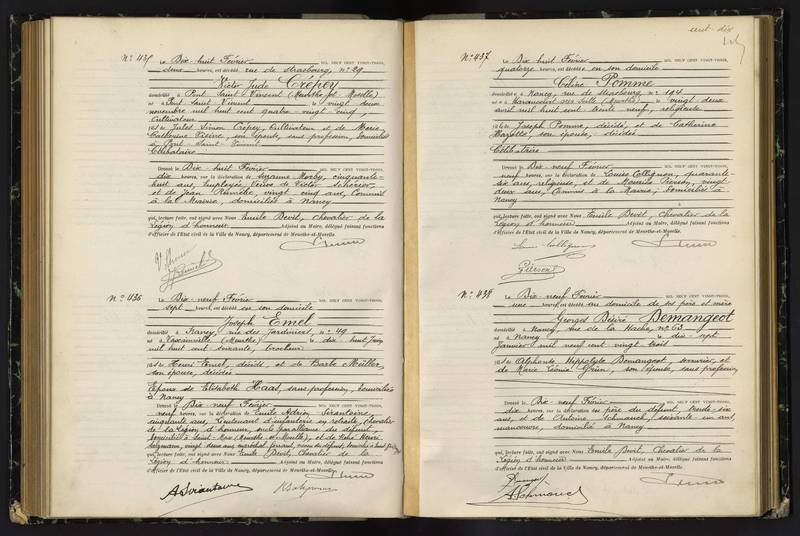 N° 435 Le Dix-huit Février MIL NEUF CENT VINGT-TROIS,
deux heures, est décédé rue de Strasbourg, n° 29
Victor Jude Crépey
domicilié à Pont Saint-Vincent (Meurthe et Moselle)
né à Pont Saint Vincent le vingt deux
novembre mil huit cent quatre vingt cinq,
Cultivateur
fils de Jules Simon Crépey, Cultivateur et de Marie
Catherine son épouse, sans profession, domiciliés
à Pont-Saint-Vincent
Célibataire
Dressé le Dix-huit Février MIL NEUF CENT VINGT-TROIS,
dix heures, sur la déclaration de Suzanne cinquante
huit ans, employée, Veuve de Victor
et de Jean vingt cinq ans, Commis
à la Mairie, domiciliés à Nancy
qui, lecture faite, ont signé avec Nous Emile Devit, Chevalier de la
Légion d'honneur Adjoint au Maire, délégué faisant fonctions
d'officier de l'Etat civil de la Ville de Nancy, département de Meurthe-et-Moselle.
N° 436 Le Dix-neuf Février MIL NEUF CENT VINGT-TROIS,
sept heures, est décédé en son domicile
Joseph Emel
domicilié à Nancy, rue des Jardiniers, n° 49
né à (Meurthe) le dix huit Juin
mil huit cent soixante, brocheur
fils de Henri Emel, décédé et de Barbe Müller,
son épouse, décédée
Epoux de Elisabeth Haas, sans profession, domiciliée
à Nancy
Dressé le Dix-neuf Février MIL NEUF CENT VINGT-TROIS,
neuf heures, sur la déclaration de Emile Adrien Sirantoine,
cinquante ans, Lieutenant d'infanterie en retraite, chevalier
de la Légion d'honneur, du défunt,
domicilié à Saint-Max (Meurthe-et-Moselle), et de Henri
vingt deux ans, maréchal ferrant, neveu du défunt, domicilié à
qui, lecture faite, ont signé avec Nous Emile Devit, Chevalier de la
Légion d'honneur Adjoint au Maire, délégué faisant fonctions
d'officier de l'Etat civil de la Ville de Nancy, département de Meurthe-et-Moselle.
A Sirantoine
cent-dix
N° 437 Le Dix-huit Février MIL NEUF CENT VINGT-TROIS,
quatorze heures, est décédée en son domicile
Céline Pomme
domiciliée à Nancy, rue de Strasbourg n° 194
née à Manoncourt sur Seille (Meurthe) le vingt deux
avril mil huit cent trente neuf, religieuse
fille de Joseph Pomme, décédé, et de Catherine
son épouse, décédée
Célibataire
Dressé le Dix-neuf Février MIL NEUF CENT VINGT-TROIS,
neuf heures, sur la déclaration de Louise Collignon, quarante-
six ans, religieuse, et de Maurice Pierson, vingt
deux ans, Commis à la Mairie, domiciliés à
Nancy
qui, lecture faite, ont signé avec Nous Emile Devit, Chevalier de la
Légion d'honneur Adjoint au Maire, délégué faisant fonctions
d'officier de l'Etat civil de la Ville de Nancy, département de Meurthe-et-Moselle.
Louise Collignon
Pierson
N° 438 Le Dix-neuf Février MIL NEUF CENT VINGT-TROIS,
une heure, est décédé au domicile de ses père et mère
Georges Désiré Demangeot
domicilié à Nancy, rue de la Hache, n° 63
né à Nancy le dix sept
Janvier mil neuf cent vingt trois
fils de Alphonse Hippolyte Demangeot, serrurier, et
de Marie Léonie Grün, son épouse, sans profession
Dressé le Dix-neuf Février MIL NEUF CENT VINGT-TROIS,
dix heures, sur la déclaration du père du défunt, trente six
ans, et de Antoine Schmauch, soixante-un ans,
manœuvre, domicilié à Nancy
qui, lecture faite, ont signé avec Nous Emile Devit, Chevalier de la
Légion d'honneur Adjoint au Maire, délégué faisant fonctions
d'officier de l'Etat civil de la Ville de Nancy, département de Meurthe-et-Moselle.
A Schmauch